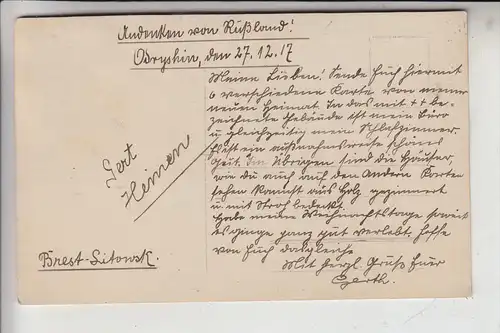 Andenken von Rußland!
Odryshin, den 27.12.17
Meine Lieben! Sende Euch hiermit
6 verschiedene Karte von meiner
neuen Heimat. In das mit ++ be-
zeichnete Gebäude ist mein Büro
u. gleichzeitig mein Schlafzimmer.
Es ist ein ausnahmsweise schönes
Haus. Im Übrigen sind die Häuser,
wie du auch auf den andern Karten
sehen kannst aus Holz gezimmert
u. mit Stroh bedeckt.
Habe meine Weihnachtstage soweit
es ginge ganz gut verlebt, hoffe
von Euch dasgleiche
Mit herzl. Gruss Euer
Gerth.
Gert
Heinen
Brest-Litowsk.